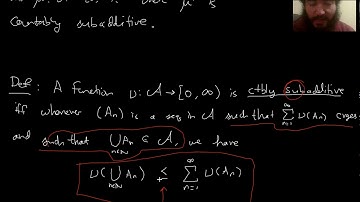 countably subadditive.
Def: A function ν: A → [0, ∞) is ctbly subadditive
iff whenever (An) is a seq in A such that ∑_{n=1}^{∞} ν(An) cvges
and such that ⋃_{n∈ℕ} An ∈ A, we have
ν(⋃_{n∈ℕ} An) ≤ ∑_{n=1}^{∞} ν(An)